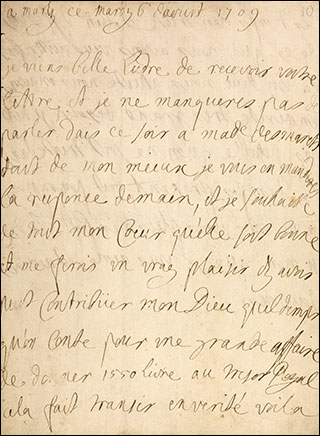 a marly ce mardy 6 daoust 1709
je viens belle Ladre de recevoir votre
lettre et je ne manqueres pas de
parler dais ce soir a made desmarets
tout de mon mieux je vous en mandres
la reponce demain, et je souhaite
de tout mon Cœur quelle soit bonne
et me feroit un vray plaisir dy avoir
put Contribuer mon Dieu quel temps
quon Conte pour une grande affaire
de donner 1550 livre au tresor Royal
cela fait transir en verité voila